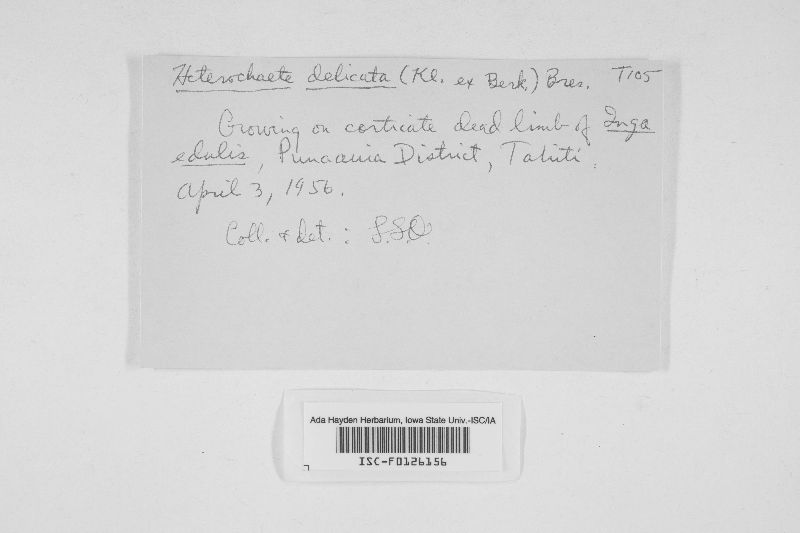 Heterochaete delicata (Kl. ex Berk.) Bres. T105
Growing on corticate dead limb of Inga
edulis, Punaauia District, Tahiti.
April 3, 1956.
Coll. & det.: L.S.O.
Ada Hayden Herbarium, Iowa State Univ.-ISC/IA
ISC-F0126156